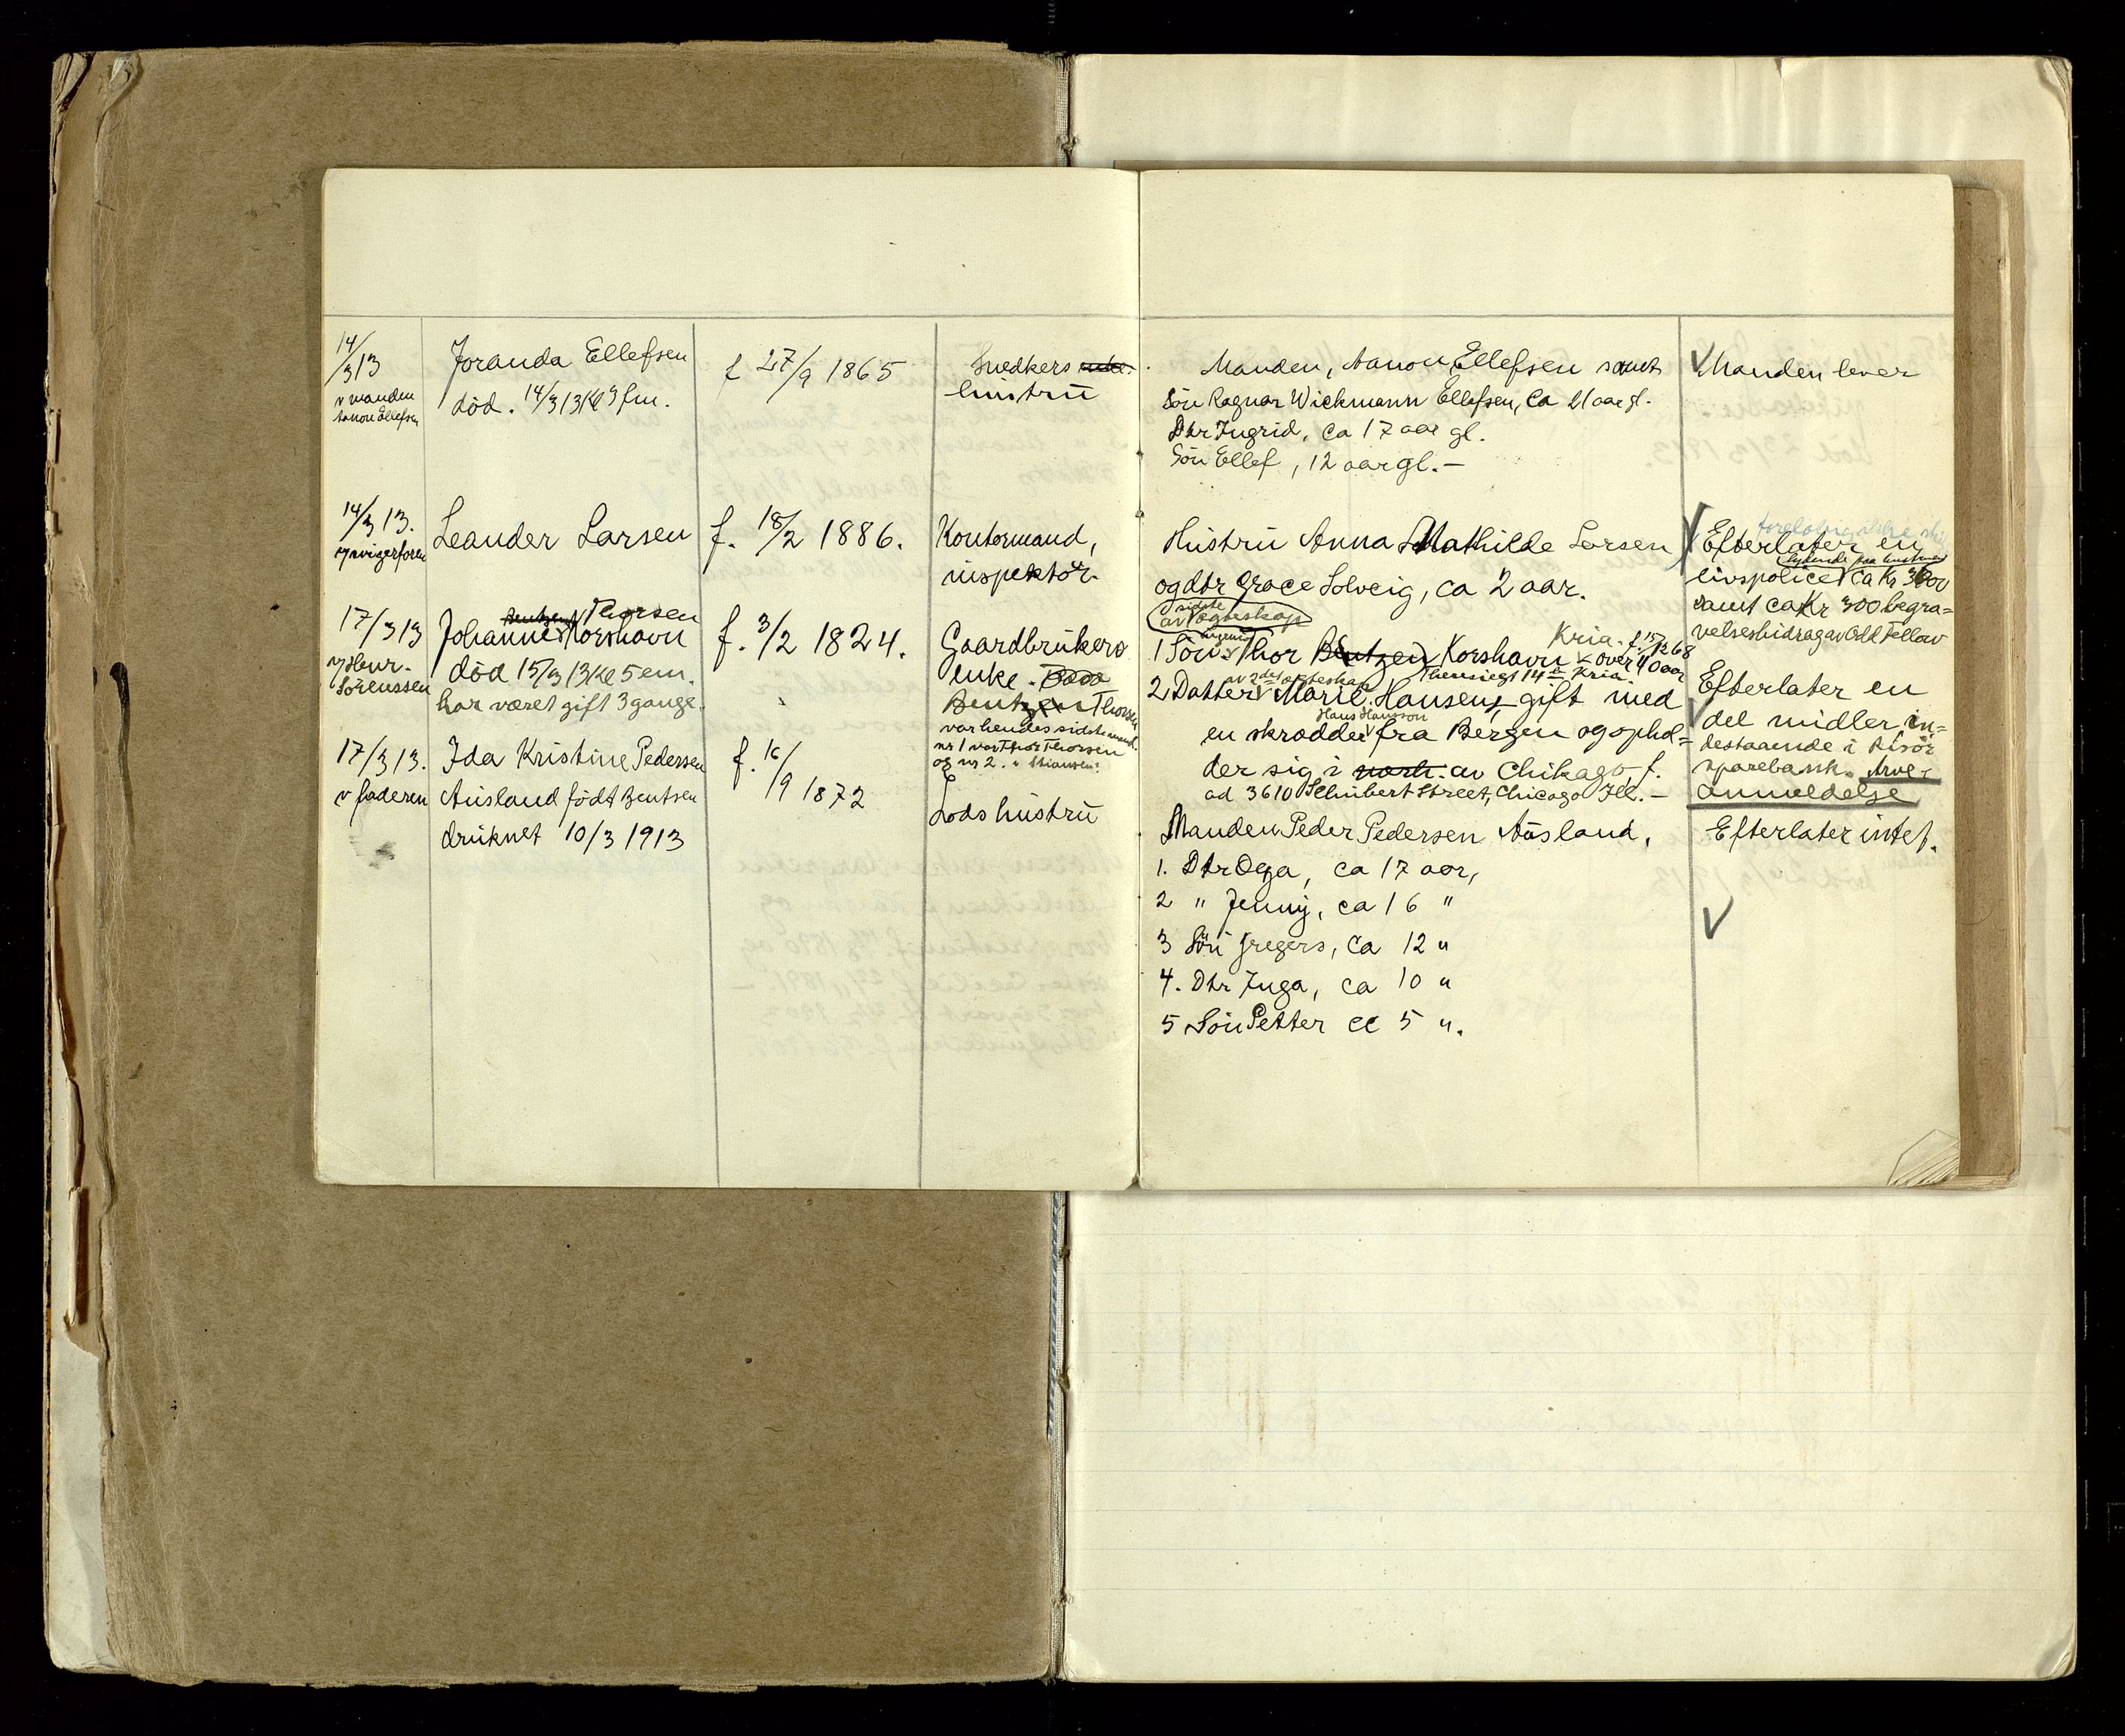 14/3 13
v manden
Aanon Ellefsen
Joranda Ellefsen
död. 14/3 13 Kl 9 fm.
f 27/9 1865
Snedkers
hustru
Manden, Aanon Ellefsen samt
Sön Ragnar Wickmann Ellefsen, ca 21 aar gl.
Dtr Ingrid, ca 17 aar gl.
Sön Ellef, 12 aar gl. —
Manden lever
14/3 13.
v svigerforen
Leander Larsen
f. 18/2 1886.
Kontormand,
inspektör
Hustru Anna Mathilde Larsen
og dtr Grace Solveig, ca 2 aar.
Efterlater en
lydende paa hustruen
livspolice ca Kr 3000
samt ca Kr 300 begra=
velsesbidrag av Odd Fellow
17/3 13
v Henr.
Sörenssen
Bentzen Thorsen
Johanne Korshavn
död 15/3 13 Kl 5 em.
har været gift 3 gange.
f. 3/2 1824.
Gaardbrukers
enke.
Bentzen Thorsen
var hendes sidste mand.
nr 1 var Thor Thorsen
og nr 2. "
av sidste egteskap
Kria. f. 15/12 68
1 Sön Thor Bentzen Korshavn – over 40 aar
av 2det egteskap Theresiegt 14 Kria.
2 Datter Marie Hansen, gift med
Hans Hansson
en skrædder fra Bergen og ophol=
der sig i av Chikago, f.
ad 3610 Schubert Street, Chicago Ill. —
Efterlater en
del midler in=
destaaende i Risör
sparebank. Arve=
anmeldelse
17/3 13.
v faderen
Ida Kristine Pedersen
Ausland födt Bentsen
druknet 10/3 1913
f. 16/9 1872
Lods hustru
Manden Peder Pedersen Ausland,
1. Dtr Olga, ca 17 aar,
2 " Jenny, ca 16 "
3 Sön Gregers, ca 12 "
4. Dtr Inga, ca 10 "
5 Sön Petter ca 5 ".
Efterlater intet.